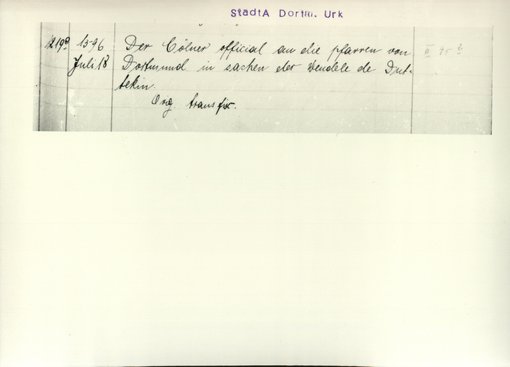 StadtA Dortm. Urk
1396 Der Cölner official an die pfarren von
Juli 18 Dortmund in sachen der Wendele de Dut-
tekin.
Org. transfix.